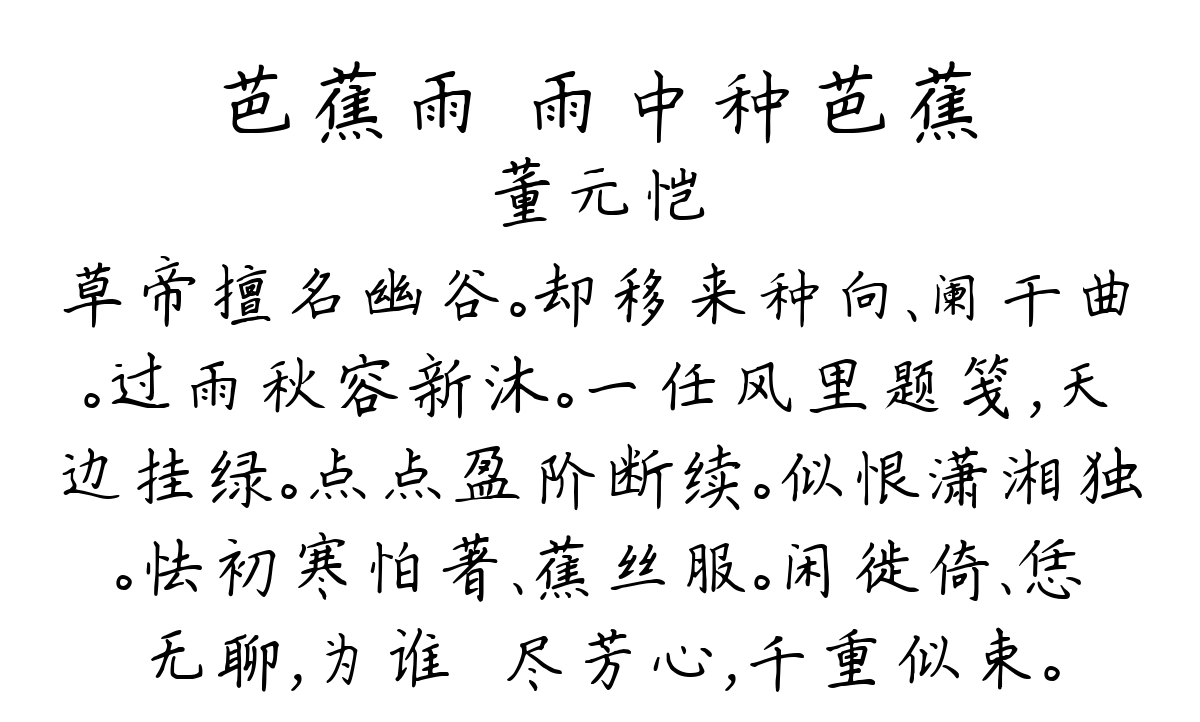 芭蕉雨 雨中种芭蕉
董元恺
草帝擅名幽谷。却移来种向、阑干曲
。过雨秋容新沐。一任风里题笺,天
边挂绿。点点盈阶断续。似恨潇湘独
。怯初寒怕著、蕉丝服。闲徙倚、恁
无聊,为谁 尽芳心,千重似束。